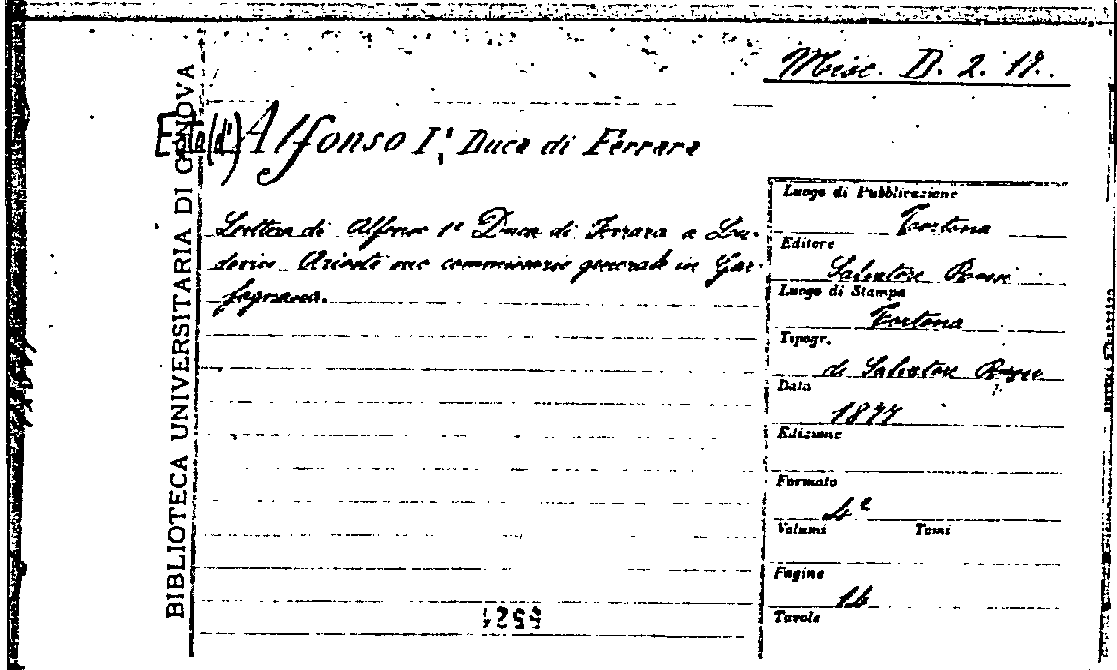 Misc. D. 2. 18.
BIBLIOTECA UNIVERSITARIA DI GENOVA
Este (d') Alfonso I°, Duca di Ferrara
Lettera di Alfonso 1° Duca di Ferrara a Lu-
dovico Ariosto suo commissario generale in Gar-
fagnana.
Luogo di Pubblicazione
Tortona
Editore
Salvatore Rossi
Luogo di Stampa
Tortona
Tipogr.
di Salvatore Rossi
Data
1877
Edizione
Formato
4°
Volumi Tomi
Pagine
Tavole